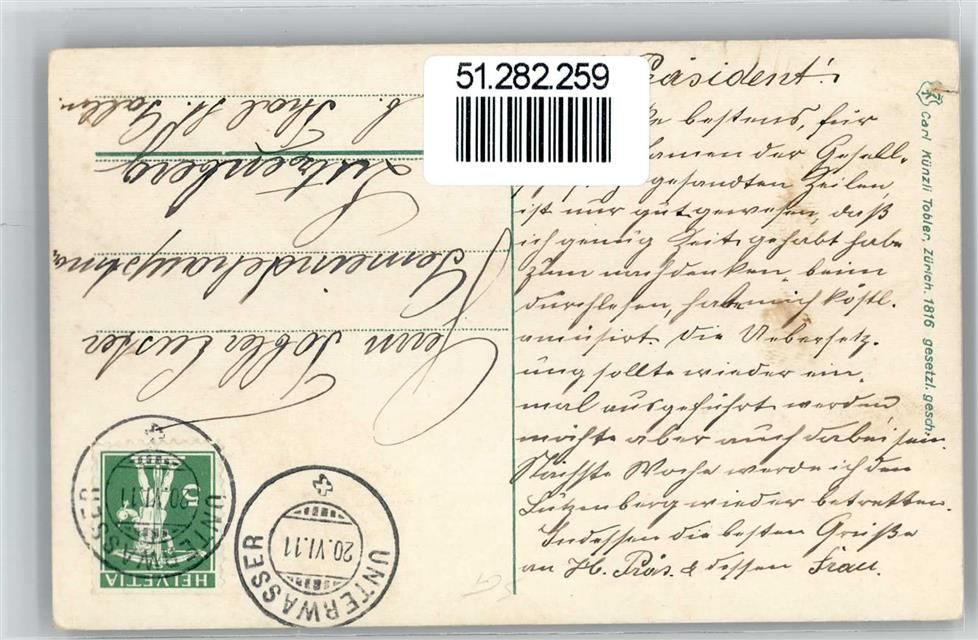 51.282.259
Präsident!
bestens, für
Namen der Gesell-
gesandten Zeilen,
ist nur gut gewesen, daß
ich genug Zeit gehabt habe
zum nachdenken, beim
durchlesen, habe mich köstl.
amüsirt. Die Uebersetz-
ung sollte wieder ein-
mal ausgeführt werden,
möchte aber auch dabei sein.
Nächste Woche werde ich den
Lutzenberg wieder betretten.
Indessen die besten Grüße
an H. Präs. & dessen Frau.
Carl Künzli Tobler, Zürich. 1816 gesetzl. gesch.
Herrn Tobler
Gemeindehauptm.
Lutzenberg
b. Thal St. Gallen.
HELVETIA
UNTERWASSER
20.VI.11
UNTERWASSER
20.VI.11